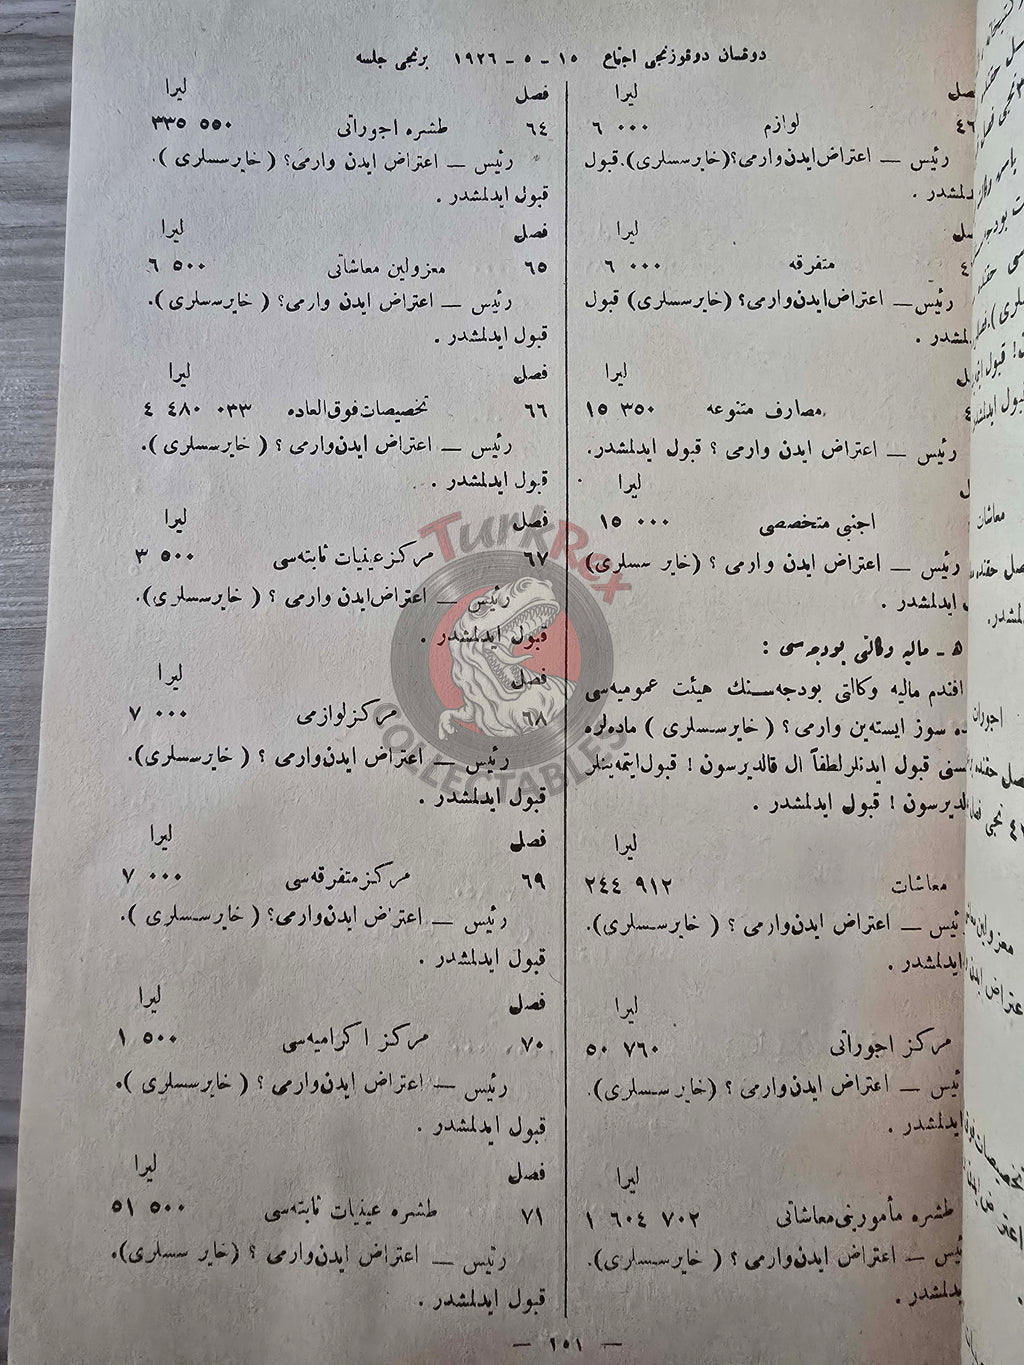 دوقسان دوقوزنجی اجتماع ١٥ - ٥ - ١٩٢٦ برنجی جلسه
فصل لیرا
٤٦ لوازم ٦ ٠٠٠
رئیس — اعتراض ایدن وارمی؟ (خایر سسلری). قبول
ایدلمشدر .
لیرا
متفرقه ٦ ٠٠٠
رئیس — اعتراض ایدن وارمی؟ (خایر سسلری) قبول
ایدلمشدر .
لیرا
مصارف متنوعه ١٥ ٣٥٠
رئیس — اعتراض ایدن وارمی ؟ قبول ایدلمشدر.
لیرا
اجنبی متخصصی ١٥ ٠٠٠
رئیس — اعتراض ایدن وارمی ؟ (خایر سسلری)
ایدلمشدر .
ه - مالیه وکالتی بودجه سی :
افندم مالیه وکالتی بودجه سنك هیئت عمومیه سی
سوز ایسته ین وارمی ؟ ( خایر سسلری ) ماده لره
قبول ایدنلر لطفاً ال قالدیرسون ! قبول ایتمه ینلر
قالدیرسون ! قبول ایدلمشدر .
لیرا
معاشات ٢٤٤ ٩١٢
رئیس — اعتراض ایدن وارمی ؟ ( خایر سسلری).
ایدلمشدر .
لیرا
مرکز اجوراتی ٥٠ ٧٦٠
رئیس — اعتراض ایدن وارمی ؟ (خایر سسلری).
ایدلمشدر .
لیرا
طشره مأمورینی معاشاتی ١ ٦٠٤ ٧٠٢
رئیس — اعتراض ایدن وارمی ؟ ( خایر سسلری).
ایدلمشدر .
فصل لیرا
٦٤ طشره اجوراتی ٣٣٥ ٥٥٠
رئیس — اعتراض ایدن وارمی؟ ( خایر سسلری ).
قبول ایدلمشدر .
فصل لیرا
٦٥ معزولین معاشاتی ٦ ٥٠٠
رئیس — اعتراض ایدن وارمی؟ ( خایر سسلری ).
قبول ایدلمشدر .
فصل لیرا
٦٦ تخصیصات فوق العاده ٤ ٤٨٠ ٠٣٣
رئیس — اعتراض ایدن وارمی ؟ ( خایر سسلری ).
قبول ایدلمشدر .
فصل لیرا
٦٧ مرکز عینیات ثابته سی ٣ ٥٠٠
رئیس — اعتراض ایدن وارمی ؟ ( خایر سسلری ).
قبول ایدلمشدر .
فصل لیرا
٦٨ مرکز لوازمی ٧ ٠٠٠
رئیس — اعتراض ایدن وارمی ؟ ( خایر سسلری).
قبول ایدلمشدر .
فصل لیرا
٦٩ مرکز متفرقه سی ٧ ٠٠٠
رئیس — اعتراض ایدن وارمی؟ ( خایر سسلری ).
قبول ایدلمشدر .
فصل لیرا
٧٠ مرکز اکرامیه سی ١ ٥٠٠
رئیس — اعتراض ایدن وارمی ؟ ( خایر سسلری ).
قبول ایدلمشدر .
فصل لیرا
٧١ طشره عینیات ثابته سی ٥١ ٥٠٠
رئیس — اعتراض ایدن وارمی ؟ (خایر سسلری).
قبول ایدلمشدر .
— ٢٥١ —
TurkRex
COLLECTABLES